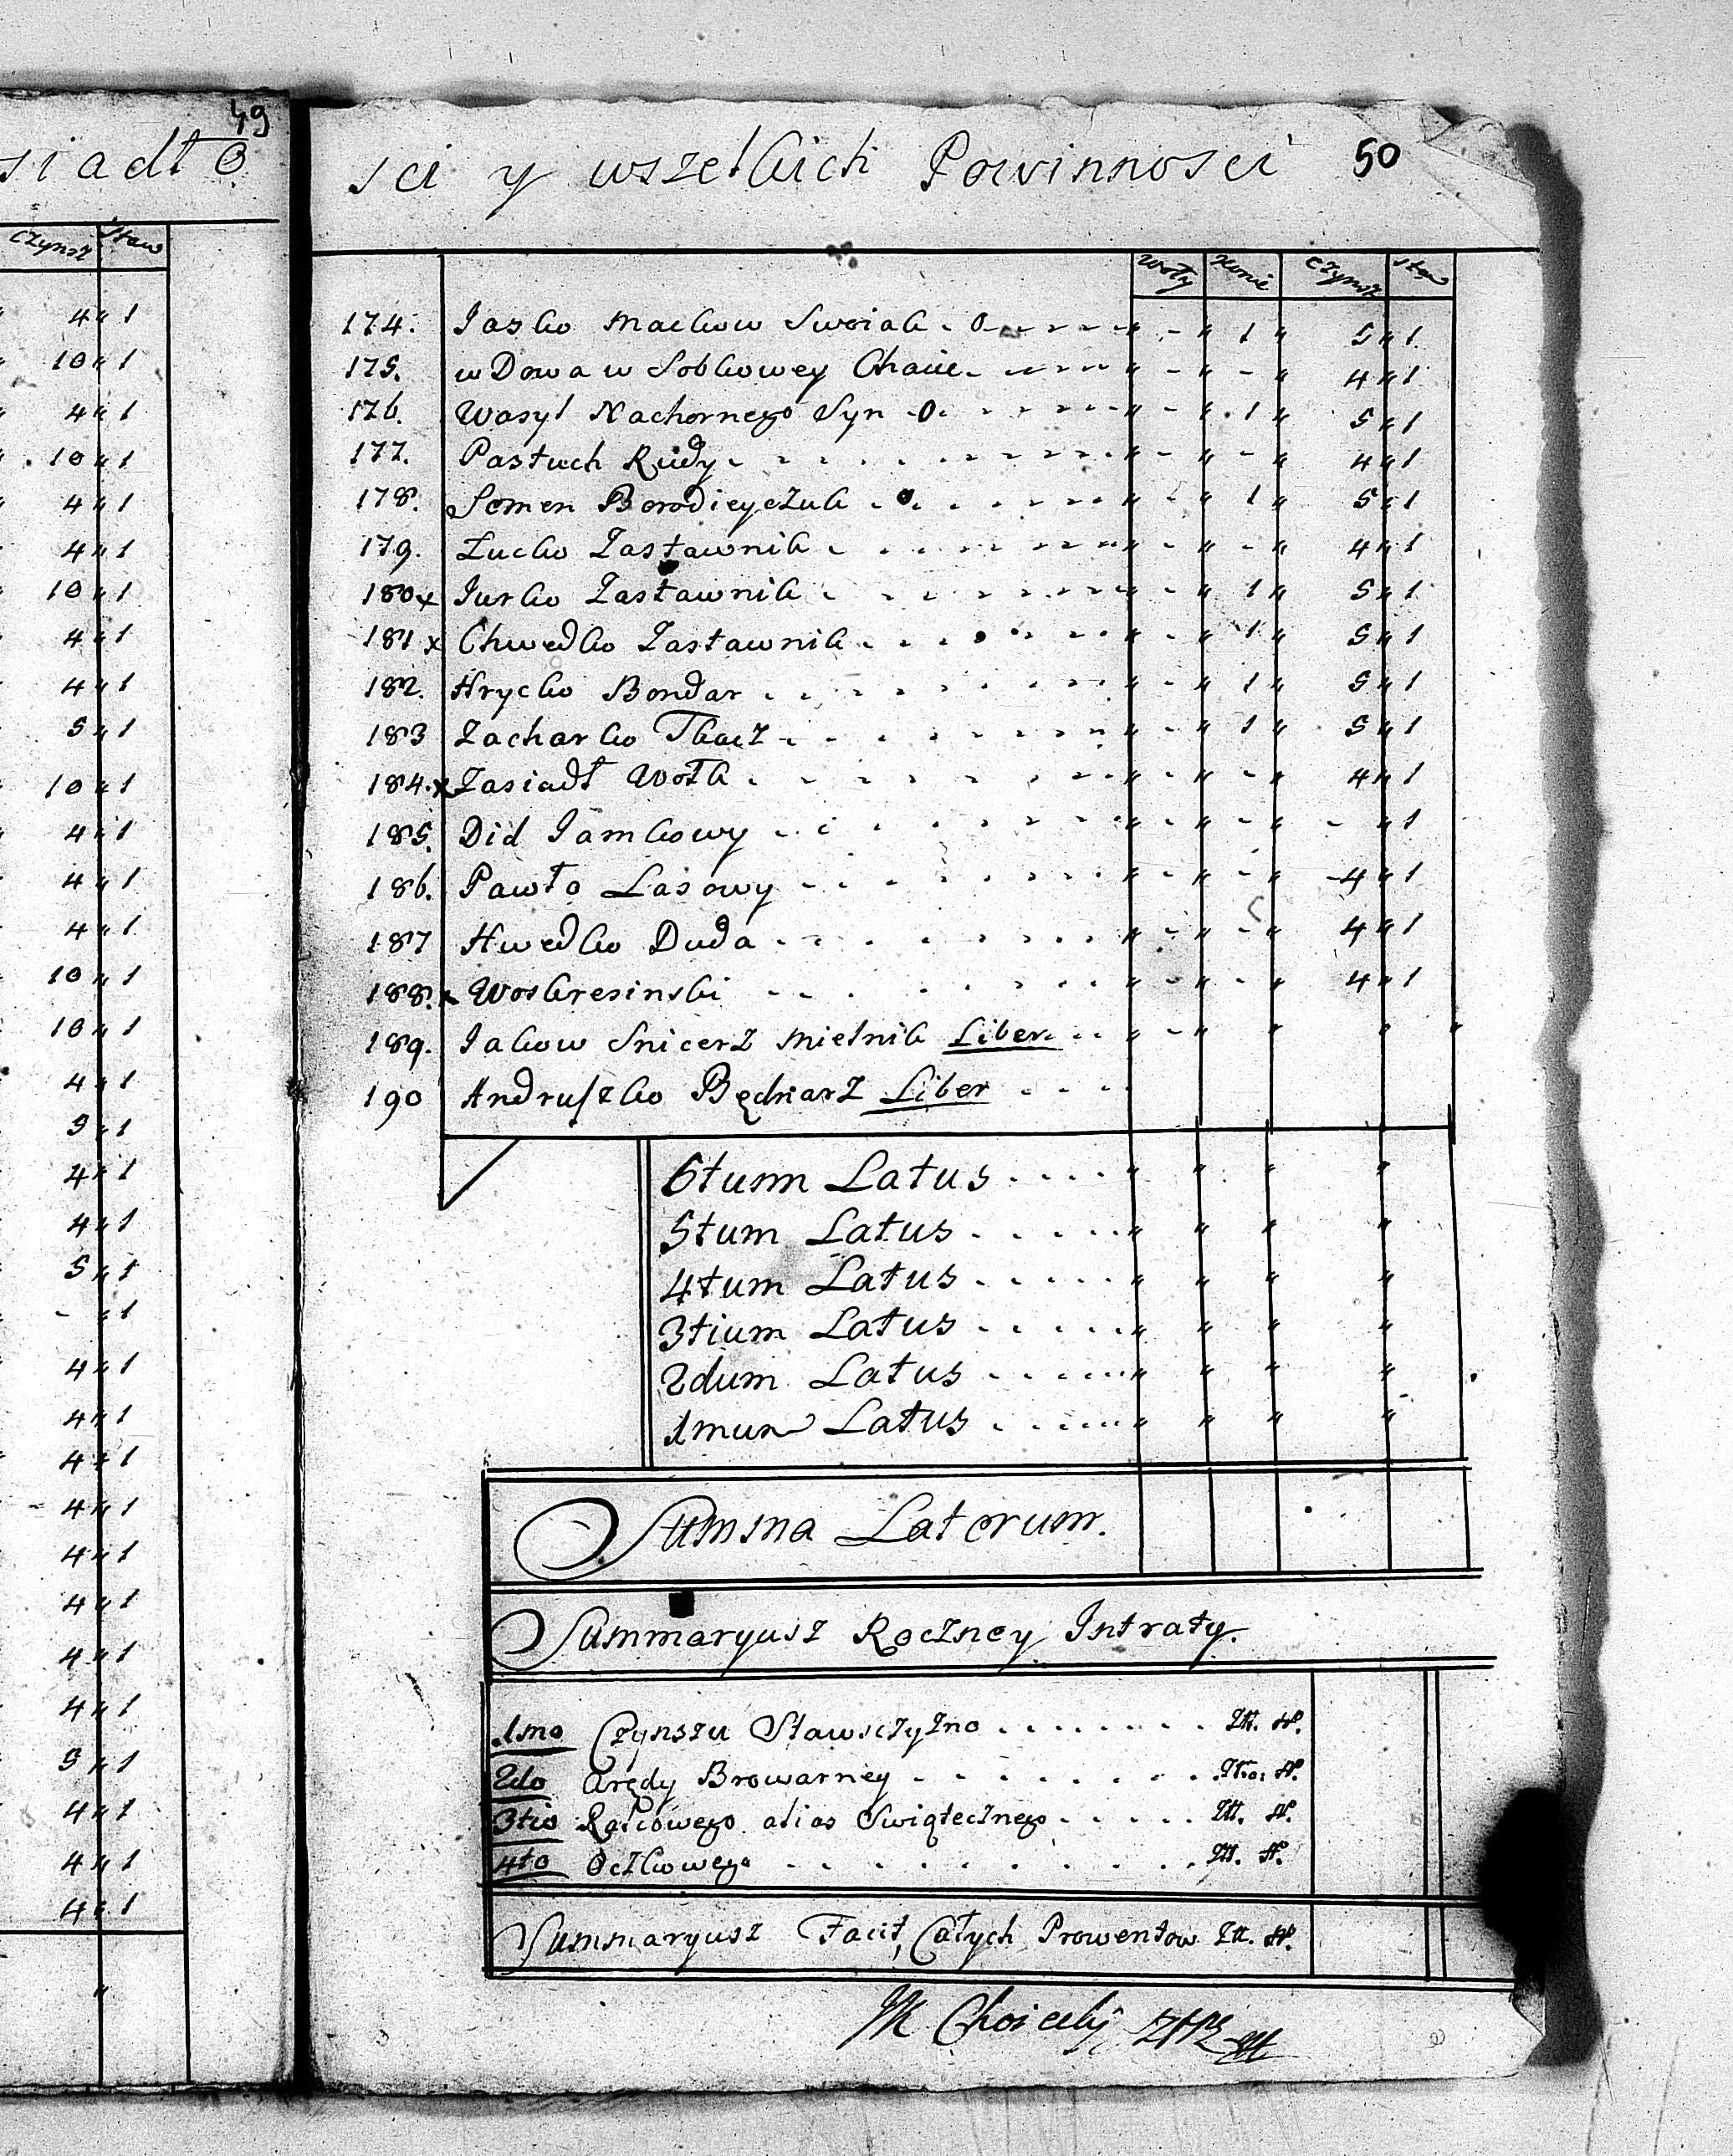 49
siadło
Czynsz Staw
4 „ 1
10 „ 1
4 „ 1
10 „ 1
4 „ 1
4 „ 1
10 „ 1
4 „ 1
4 „ 1
5 „ 1
10 „ 1
4 „ 1
4 „ 1
4 „ 1
10 „ 1
10 „ 1
4 „ 1
9 „ 1
4 „ 1
4 „ 1
5 „ 1
- „ 1
4 „ 1
4 „ 1
4 „ 1
4 „ 1
4 „ 1
4 „ 1
4 „ 1
4 „ 1
5 „ 1
4 „ 1
4 „ 1
4 „ 1
„
sci y wszelkich Powinnosci 50
Woły Konie Czynsz Staw
174. Jasko Mackow Swoiak . o „ - „ 1 „ 5 „ 1
175. wDowa w Sobkowey Chacie „ - „ - „ 4 „ 1
176. Wasyl Nachornego Syn - o „ - „ 1 „ 5 „ 1
177. Pastuch Rudy „ - „ - „ 4 „ 1
178. Semen Borodieyczuk „ - „ 1 „ 5 „ 1
179. Lucko Zastawnik „ - „ - „ 4 „ 1
180 x Jurko Zastawnik „ - „ 1 „ 5 „ 1
181 x Chwedko Zastawnik „ - „ 1 „ 5 „ 1
182. Hrycko Bondar „ - „ 1 „ 5 „ 1
183 Zacharko Tkacz „ - „ 1 „ 5 „ 1
184. x Zasiadł Wołk „ - „ - „ 4 „ 1
185. Did Jamkowy „ - „ - „ - „ 1
186. Pawło Lasowy „ - „ - „ 4 „ 1
187 Hwedko Duda „ - „ - „ 4 „ 1
188. x Woskresinski „ - „ - „ 4 „ 1
189. Jakow Snicerz Mielnik Liber „ - „ „ „ „
190 Andruszko Będnarz Liber
6tum Latus „ „ „ „
5tum Latus „ „ „ „
4tum Latus „ „ „ „
3tium Latus „ „ „ „
2dum Latus „ „ „ „
1mum Latus „ „ „ „
Summa Laterum.
Summaryusz Roczney Intraty.
1mo Czynszu Stawsczyzno Zł. N.
2do Arędy Browarney Zło. N.
3tio Ralcowego alias Swiątecznego Zł. N.
4to Oczkowego Zł. N.
Summaryusz Facit, Całych Prowentow Zł. N.